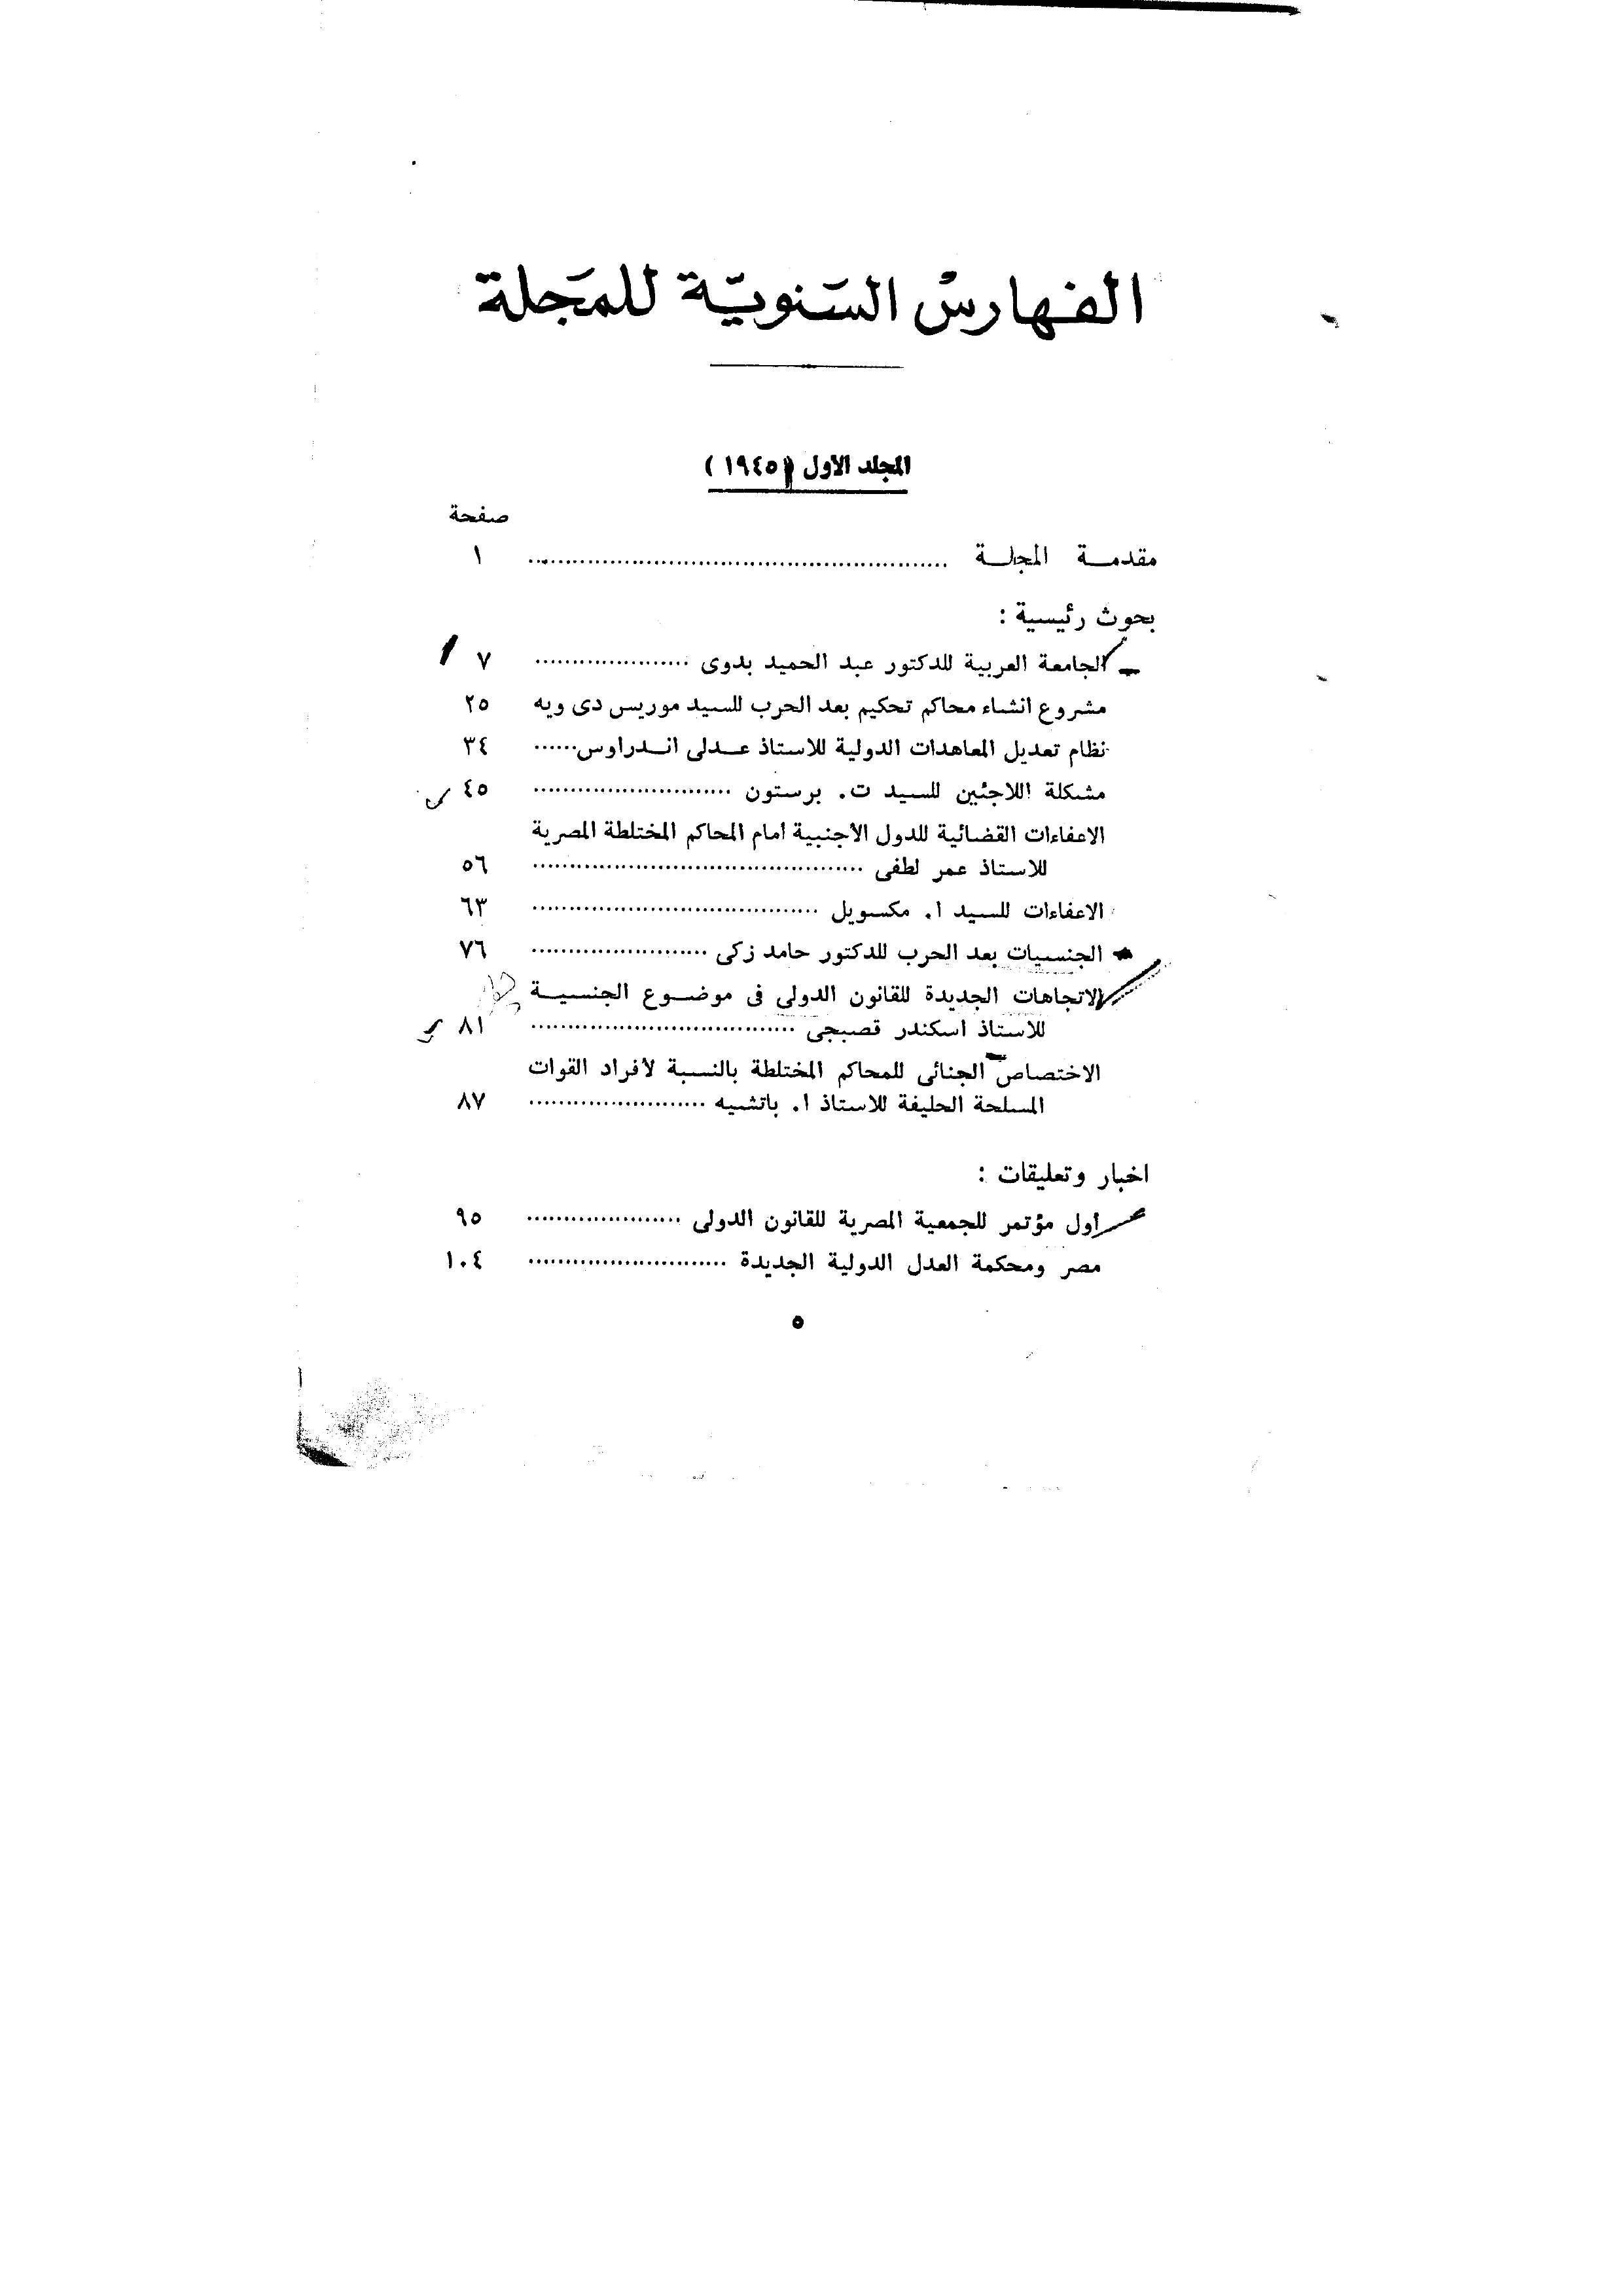 الفهارس السنوية للمجلة
المجلد الاول (١٩٤٥)
صفحة
مقدمة المجلة ........ ١
بحوث رئيسية :
الجامعة العربية للدكتور عبد الحميد بدوى ........ ٧
مشروع انشاء محاكم تحكيم بعد الحرب للسيد موريس دى ويه ٢٥
نظام تعديل المعاهدات الدولية للاستاذ عدلى اندراوس ...... ٣٤
مشكلة اللاجئين للسيد ت. برستون ........ ٤٥
الاعفاءات القضائية للدول الأجنبية أمام المحاكم المختلطة المصرية
للاستاذ عمر لطفى ........ ٥٦
الاعفاءات للسيد ا. مكسويل ........ ٦٣
الجنسيات بعد الحرب للدكتور حامد زكى ........ ٧٦
الاتجاهات الجديدة للقانون الدولى فى موضوع الجنسية
للاستاذ اسكندر قصبجى ........ ٨١
الاختصاص الجنائى للمحاكم المختلطة بالنسبة لأفراد القوات
المسلحة الحليفة للاستاذ ا. باتشيه ........ ٨٧
اخبار وتعليقات :
أول مؤتمر للجمعية المصرية للقانون الدولى ........ ٩٥
مصر ومحكمة العدل الدولية الجديدة ........ ١٠٤
٥